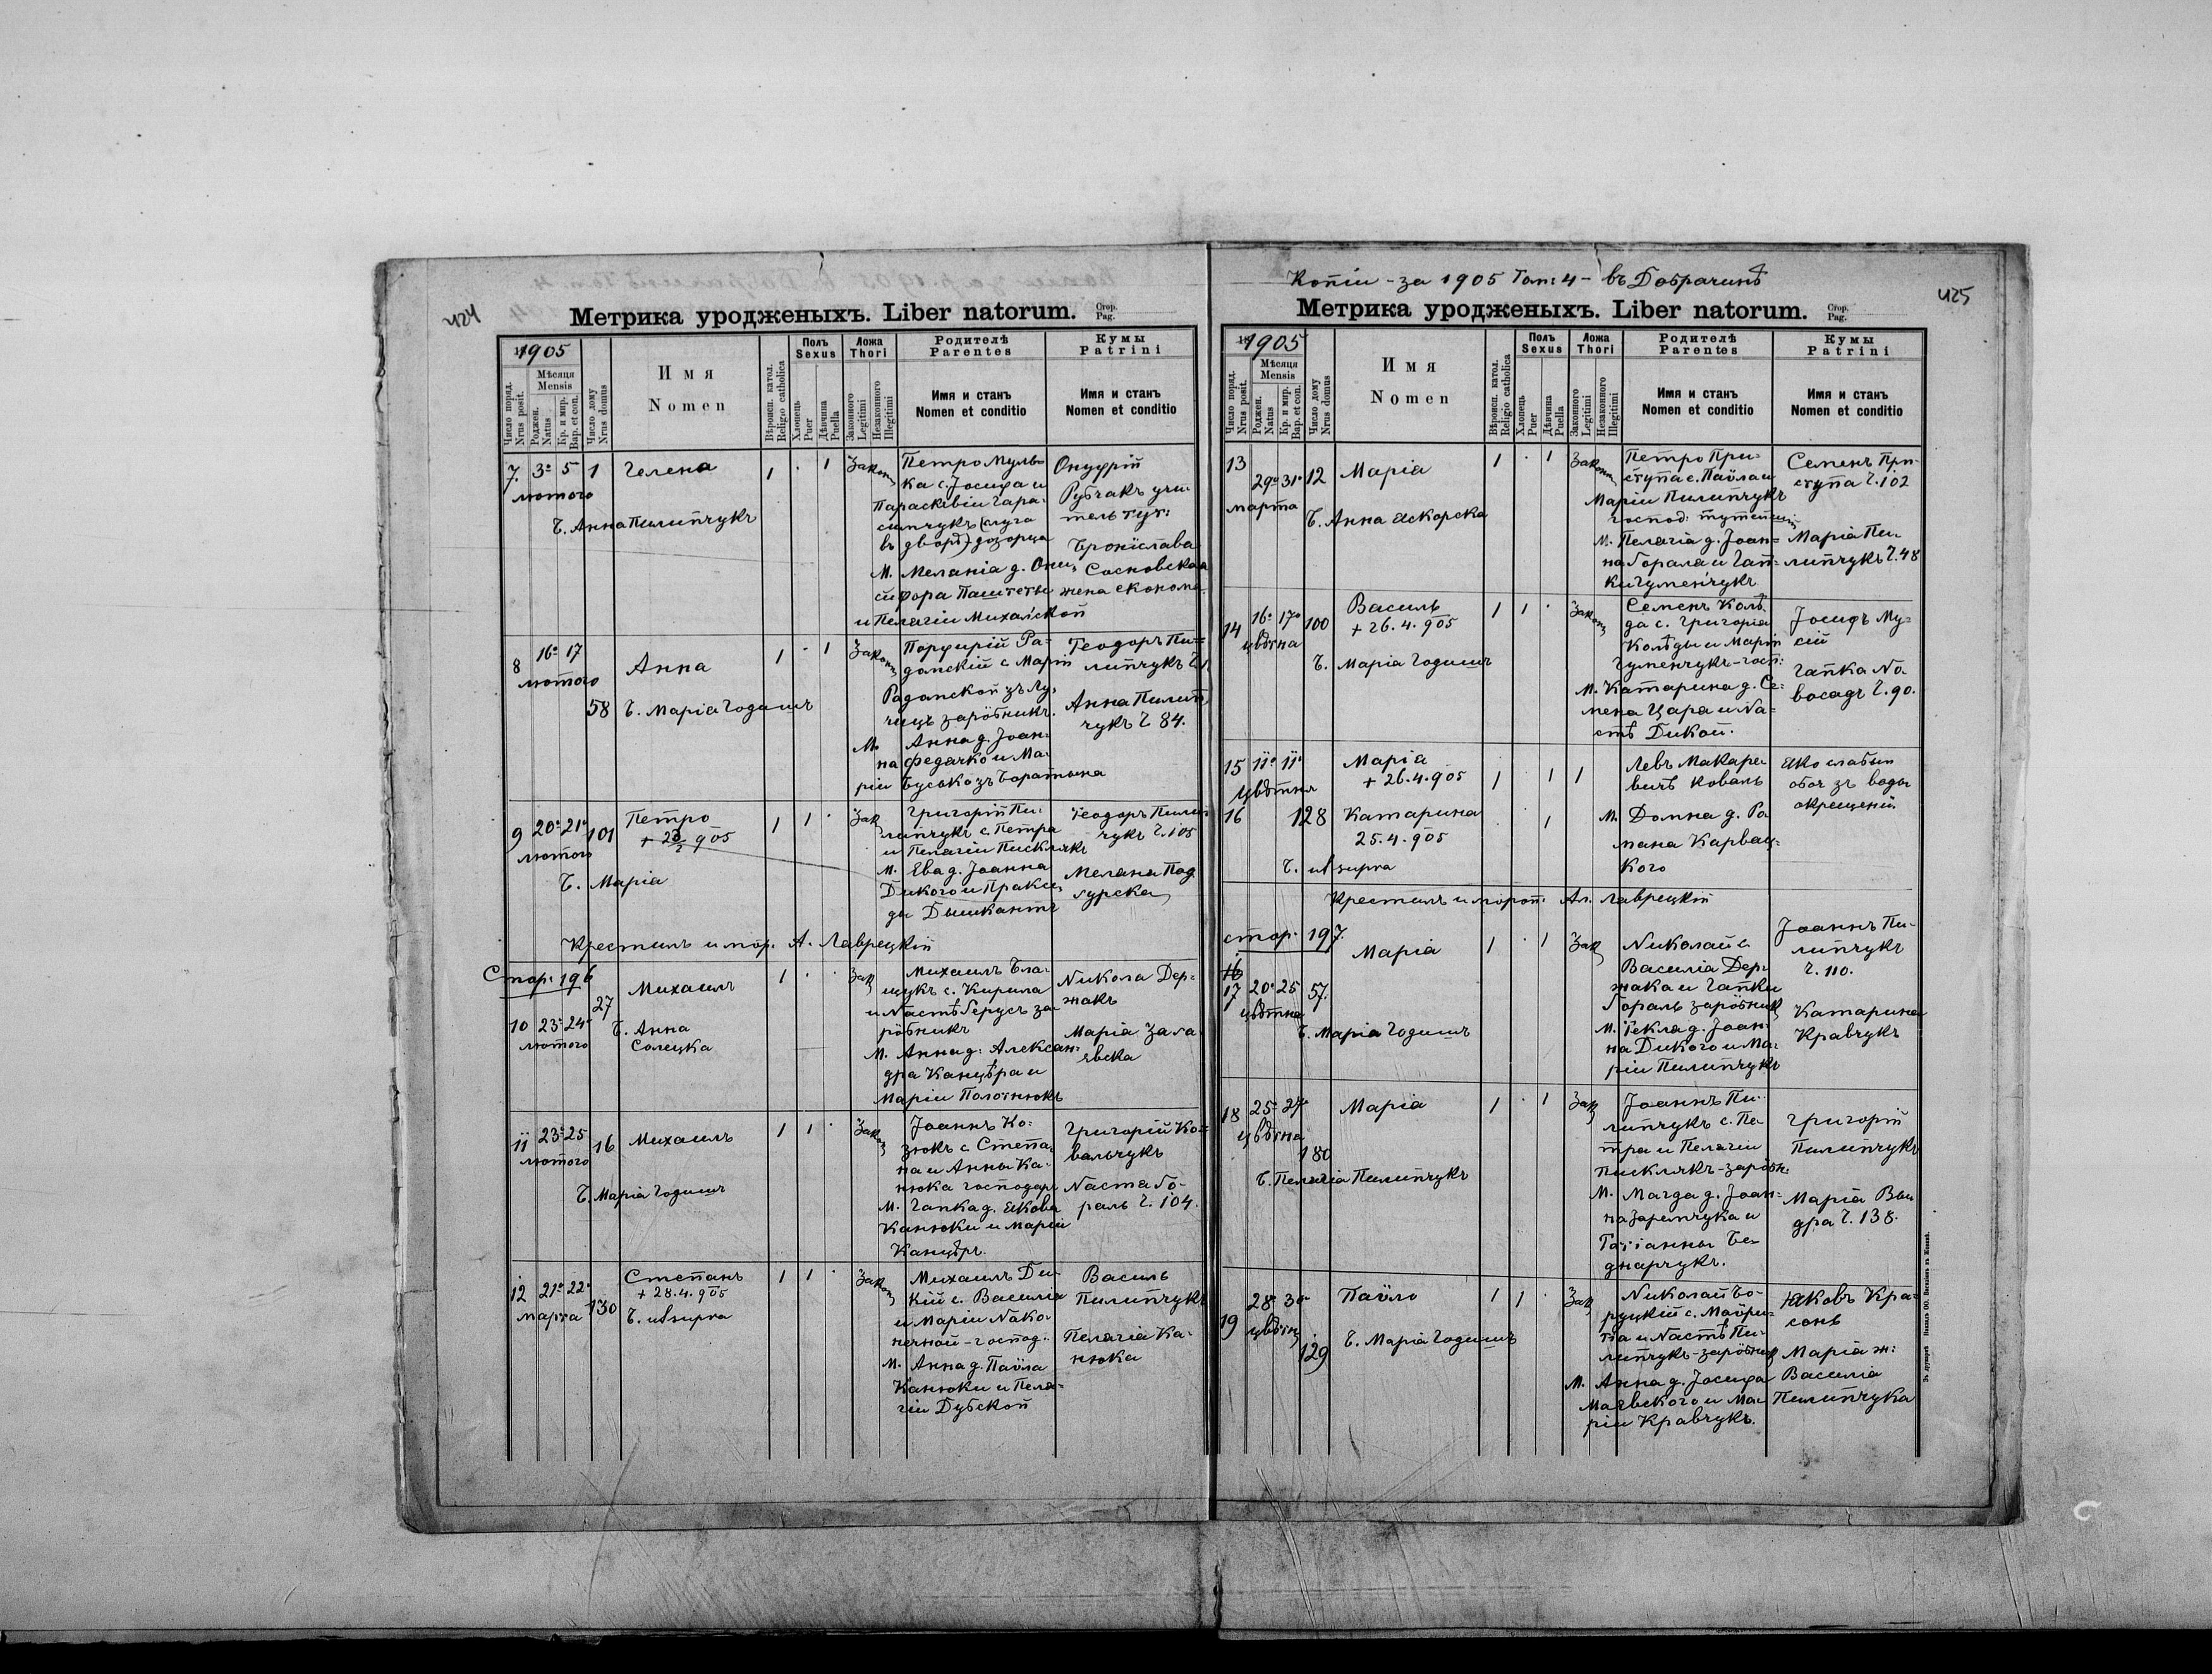 424
Метрика уродженыхъ. Liber natorum.
Стор.
Pag.
1905
Число поряд.
Nrus posit.
Мѣсяця
Mensis
Роджен.
Natus
Кр. и мир.
Bap. et con.
Число дому
Nrus domus
Имя
Nomen
Вѣроисп. катол.
Religio catholica
Полъ
Sexus
Хлопець
Puer
Дѣвчина
Puella
Ложа
Thori
Законного
Legitimi
Незаконного
Illegitimi
Родителѣ
Parentes
Имя и станъ
Nomen et conditio
Кумы
Patrini
Имя и станъ
Nomen et conditio
7. 3º 5 1 Гелена 1 · 1 Законн
лютого
Б. Анна Пилипчукъ
Петро Муль-
ка с. Іосифа и
Параскевіи Гара-
симчукъ (слуга
въ дворѣ) дозорца
М. Меланія д. Они-
сифора Паштеты
и Пелагіи Михальской
Онуфрій
Рубчакъ учи-
тель тут:
Броніслава
Сосновска
жена економа
8 16º 17
лютого
58 Анна 1 · 1 Законн
Б. Марія Годишъ
Порфирій Ра-
домскій с Маріи
Радомской зъ Лу-
чиць заробникъ.
М. Анна д. Іоан-
на Федечко и Ма-
ріи Бусько зъ Боратына
Теодоръ Пи-
липчукъ Ч. 1.
Анна Пилип
чукъ Ч 84.
9 20º 21º 101 Петро 1 1 · Зак
лютого
+ 23/2 905
Б. Марія
Григорій Пи-
липчукъ с. Петра
и Пелагіи Писклякъ
М. Ева д. Іоанна
Дикого и Пракси-
ды Дышкантъ
Теодоръ Пилип
чукъ Ч. 105
Мелана Под
гурска
Крестилъ и мир. А. Лаврецкій
Стор. 196
10 23º 24º
лютого
27 Михаилъ 1 · · Зак
Б. Анна
Солецка
Михаилъ Бла-
щукъ с. Кирила
и Настѣ Герусъ за
робникъ
М. Анна д. Алексан-
дра Канцѣра и
Маріи Полотнюкъ
Никола Дер-
жакъ
Марія Зала
евска
11 23º 25
лютого
16 Михаилъ 1 1 · Закон
Б. Марія Годишъ
Іоаннъ Ко-
зюкъ с Степа-
на и Анны Ка-
нюка господаръ
М. Гапка д. Якова
Канюки и Маріи
Канцѣръ.
Григорій Ко-
вальчукъ
Наста Го-
раль Ч. 104.
12 21º 22º
марта
130 Степанъ 1 1 · Закон
+ 28.4.905
Б. ut supra
Михаилъ Ди-
кій с. Василія
и Маріи Нако-
нечной - господ.
М. Анна д. Павла
Канюки и Пела-
гіи Дубской
Василь
Пилипчукъ
Пелагія Ка-
нюка
Копіи - за 1905 Том: 4 - въ Добрачинѣ
425
Метрика уродженыхъ. Liber natorum.
Стор.
Pag.
1905
Число поряд.
Nrus posit.
Мѣсяця
Mensis
Роджен.
Natus
Кр. и мир.
Bap. et con.
Число дому
Nrus domus
Имя
Nomen
Вѣроисп. катол.
Religio catholica
Полъ
Sexus
Хлопець
Puer
Дѣвчина
Puella
Ложа
Thori
Законного
Legitimi
Незаконного
Illegitimi
Родителѣ
Parentes
Имя и станъ
Nomen et conditio
Кумы
Patrini
Имя и станъ
Nomen et conditio
13
29º 31º 12 Марія 1 · 1 Законн
марта
Б. Анна Яскорска
Петро При-
ступа с. Павла и
Маріи Пилипчукъ
господ: тутейшій
М. Пелагія д. Іоан-
на Гораля и Гап-
ки Гуменчукъ
Семенъ При-
ступа Ч. 102
Марія Пи-
липчукъ Ч. 48
14 16º 17º 100 Василь 1 1 · Закон
цвѣтна
+ 26.4.905
Б. Марія Годишъ
Семенъ Колѣ
да с. Григорія
Колѣды и Маріи
Гуменчукъ - госп:
М. Катарина д. Се-
мена Цара и На-
стѣ Дикой.
Іосифъ Му-
сій
Гапка Но-
восадъ Ч. 90.
15 11º 11º Марія 1 1 1
цвѣтня
+ 26.4.905
16 128 Катарина 1
25.4.905
Б. ut supra
Левъ Макаре-
вичъ коваль
М. Домна д. Ро
мана Карвац-
кого
Яко слабыи
обоє зъ воды
окрещені
Крестилъ и мѵроп. Ал. Лаврецкій
стор. 197.
16
17 20º 25 57. Марія 1 · 1 Зак
цвѣтна
Б. Марія Годишъ
Николай с.
Василія Дер-
жака и Гапки
Гораль заробник
М. Текля д. Іоан-
на Дикого и Ма-
ріи Пилипчукъ
Іоаннъ Пи-
липчукъ
Ч. 110.
Катарина
Кравчукъ
18 25º 27º Марія 1 · 1 Зак
цвѣтна
180
Б. Пелагія Пилипчукъ
Іоаннъ Пи-
липчукъ с. Пе-
тра и Пелагіи
Писклякъ - заробн:
М. Магда д. Іоан-
на Заремчука и
Татіанны Бе-
днарчукъ.
Григорій
Пилипчукъ
Марія Вы
дра Ч. 138.
28º 30º Павло 1 1 · Зак
19 цвѣтн
129
Б. Марія Годишъ
Николай Бо-
руцкій с. Маври-
тія и Настѣ Пи-
липчукъ - заробник
М. Анна д. Іосифа
Маевского и Ма-
ріи Кравчукъ.
Яковъ Кра-
сонь
Марія ж:
Василія
Пилипчука